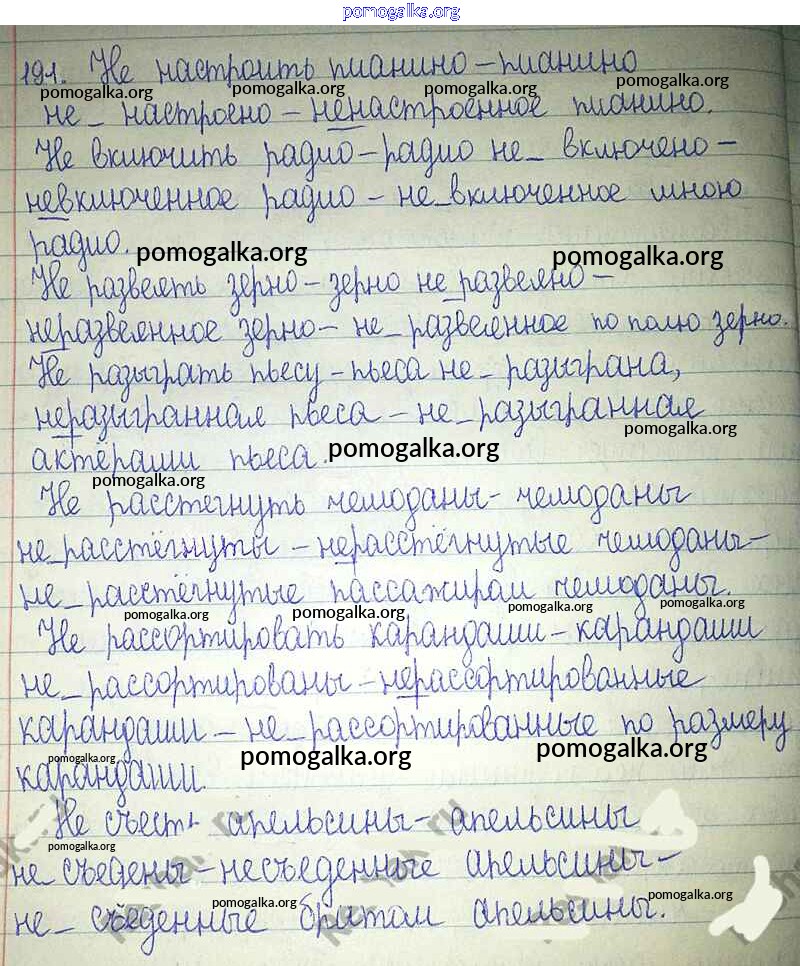 pomogalka.org
191. Не настроить пианино – пианино
pomogalka.org pomogalka.org pomogalka.org pomogalka.org
не_ настроено – ненастроенное пианино.
Не включить радио – радио не_ включено –
невключенное радио – не_включенное мною
радио. pomogalka.org pomogalka.org
Не развеять зерно – зерно не_развеяно –
неразвеянное зерно – не_ развеянное по полю зерно.
Не разыграть пьесу – пьеса не_ разыграна,
неразыгранная пьеса – не_ разыгранная
pomogalka.org
актёрами пьеса. pomogalka.org
pomogalka.org
Не расстегнуть чемоданы – чемоданы
не_расстёгнуты – нерасстёгнутые чемоданы –
не_ расстёгнутые пассажирам чемоданы.
pomogalka.org pomogalka.org pomogalka.org pomogalka.org
Не рассортировать карандаши – карандаши
не_ рассортированы – нерассортированные
карандаши – не_ рассортированные по размеру
pomogalka.org pomogalka.org pomogalka.org
карандаши.
Не съесть апельсины – апельсины
pomogalka.org
не_ съедены – несъеденные апельсины –
не_ съеденные братом апельсины.
pomogalka.org pomogalka.org